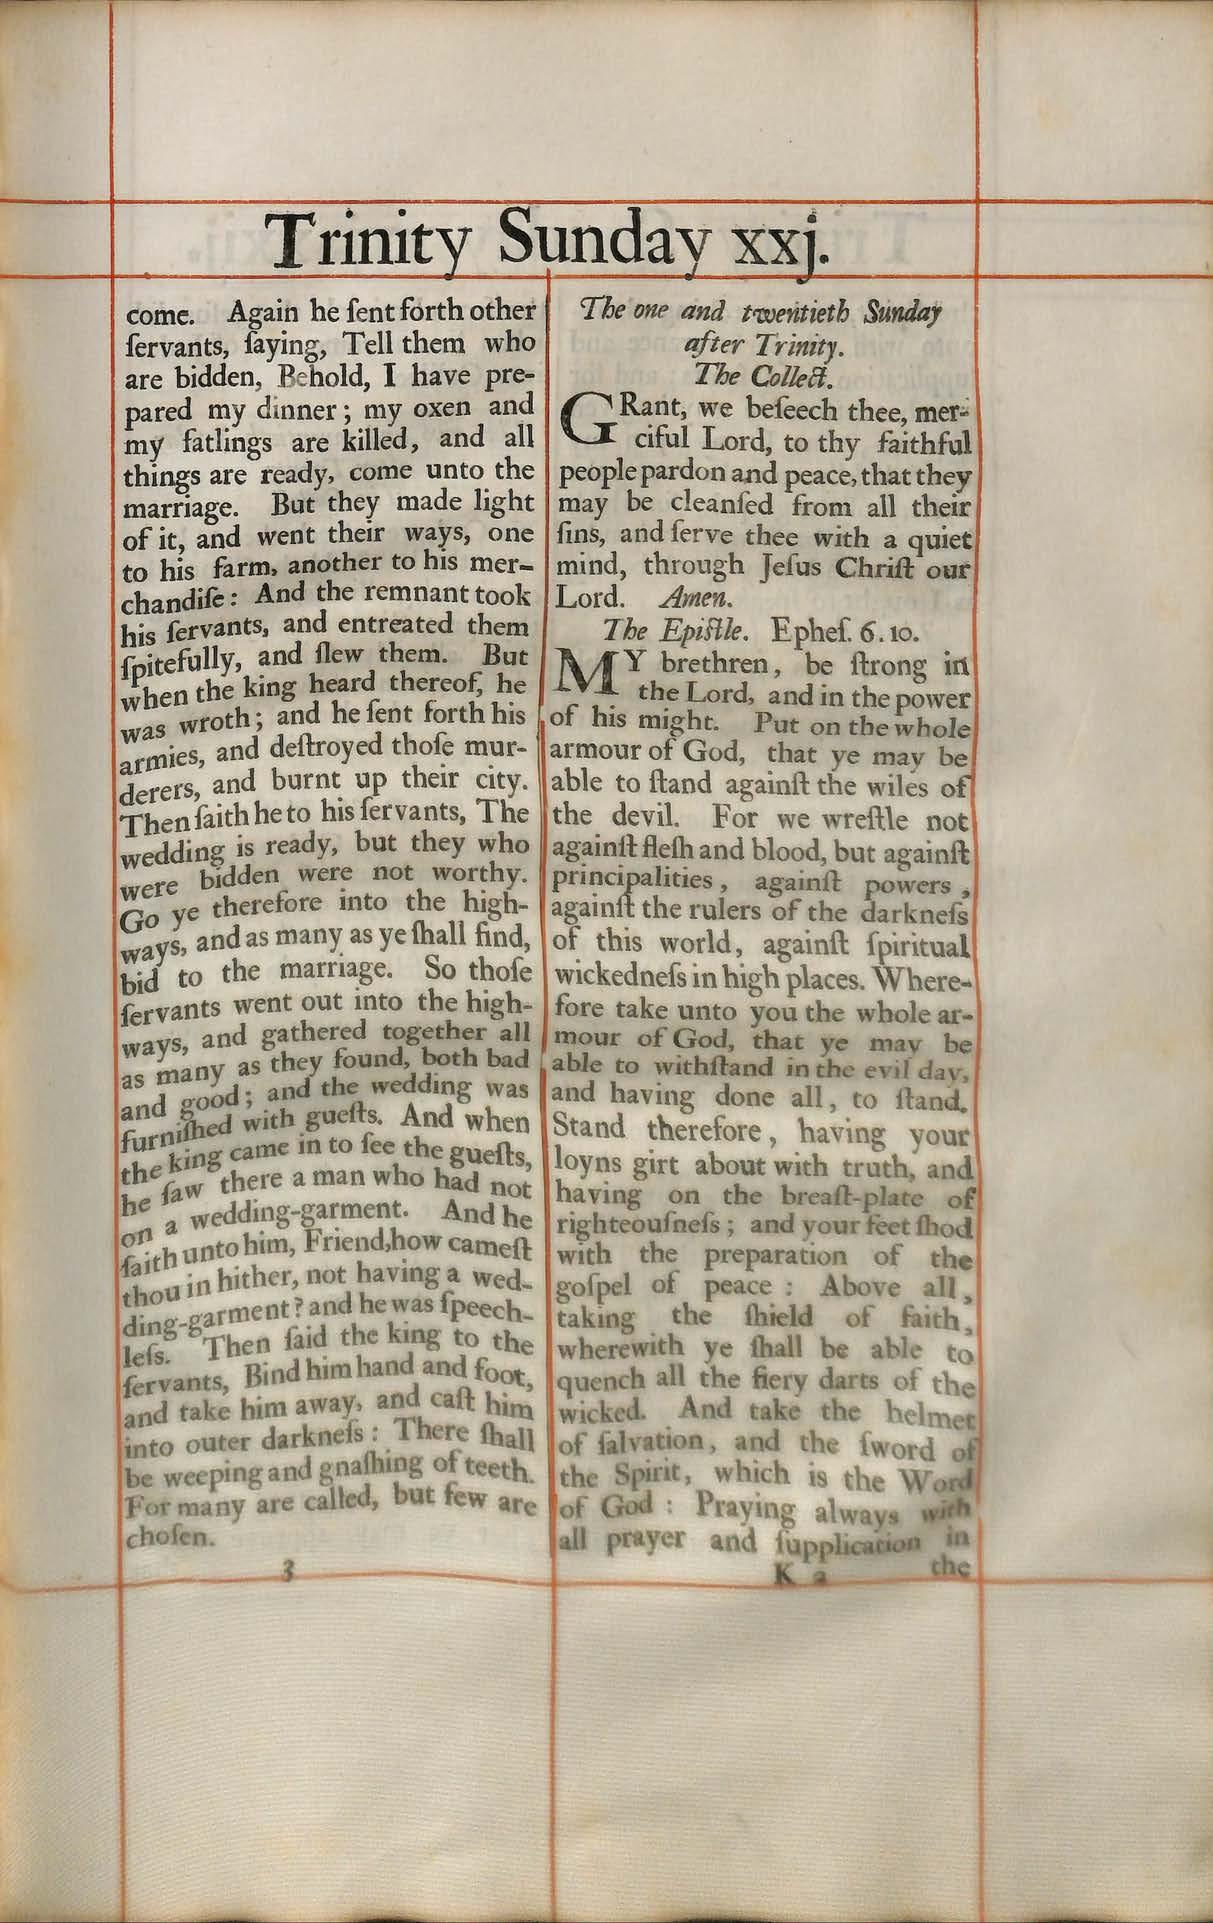 Trinity Sunday xxj.
come. Again he ſent forth other
ſervants, ſaying, Tell them who
are bidden, Behold, I have pre-
pared my dinner; my oxen and
my fatlings are killed, and all
things are ready, come unto the
marriage. But they made light
of it, and went their ways, one
to his farm, another to his mer-
chandiſe: And the remnant took
his ſervants, and entreated them
ſpitefully, and ſlew them. But
when the king heard thereof, he
was wroth; and he ſent forth his
armies, and deſtroyed thoſe mur-
derers, and burnt up their city.
Then ſaith he to his ſervants, The
wedding is ready, but they who
were bidden were not worthy.
Go ye therefore into the high-
ways, and as many as ye ſhall find,
bid to the marriage. So thoſe
ſervants went out into the high-
ways, and gathered together all
as many as they found, both bad
and good; and the wedding was
furniſhed with gueſts. And when
the king came in to ſee the gueſts,
he ſaw there a man who had not
on a wedding-garment. And he
ſaith unto him, Friend, how cameſt
thou in hither, not having a wed-
ding-garment? and he was ſpeech-
leſs. Then ſaid the king to the
ſervants, Bind him hand and foot,
and take him away, and caſt him
into outer darkneſs: There ſhall
be weeping and gnaſhing of teeth.
For many are called, but few are
choſen.
3
The one and twentieth Sunday
after Trinity.
The Collect.
GRant, we beſeech thee, mer-
ciful Lord, to thy faithful
people pardon and peace, that they
may be cleanſed from all their
ſins, and ſerve thee with a quiet
mind, through Jeſus Chriſt our
Lord. Amen.
The Epiſtle. Epheſ. 6. 10.
MY brethren, be ſtrong in
the Lord, and in the power
of his might. Put on the whole
armour of God, that ye may be
able to ſtand againſt the wiles of
the devil. For we wreſtle not
againſt fleſh and blood, but againſt
principalities, againſt powers,
againſt the rulers of the darkneſs
of this world, againſt ſpiritual
wickedneſs in high places. Where-
fore take unto you the whole ar-
mour of God, that ye may be
able to withſtand in the evil day,
and having done all, to ſtand.
Stand therefore, having your
loyns girt about with truth, and
having on the breaſt-plate of
righteouſneſs; and your feet ſhod
with the preparation of the
goſpel of peace: Above all,
taking the ſhield of faith,
wherewith ye ſhall be able to
quench all the fiery darts of the
wicked. And take the helmet
of ſalvation, and the ſword of
the Spirit, which is the Word
of God: Praying always with
all prayer and ſupplication in
K a the